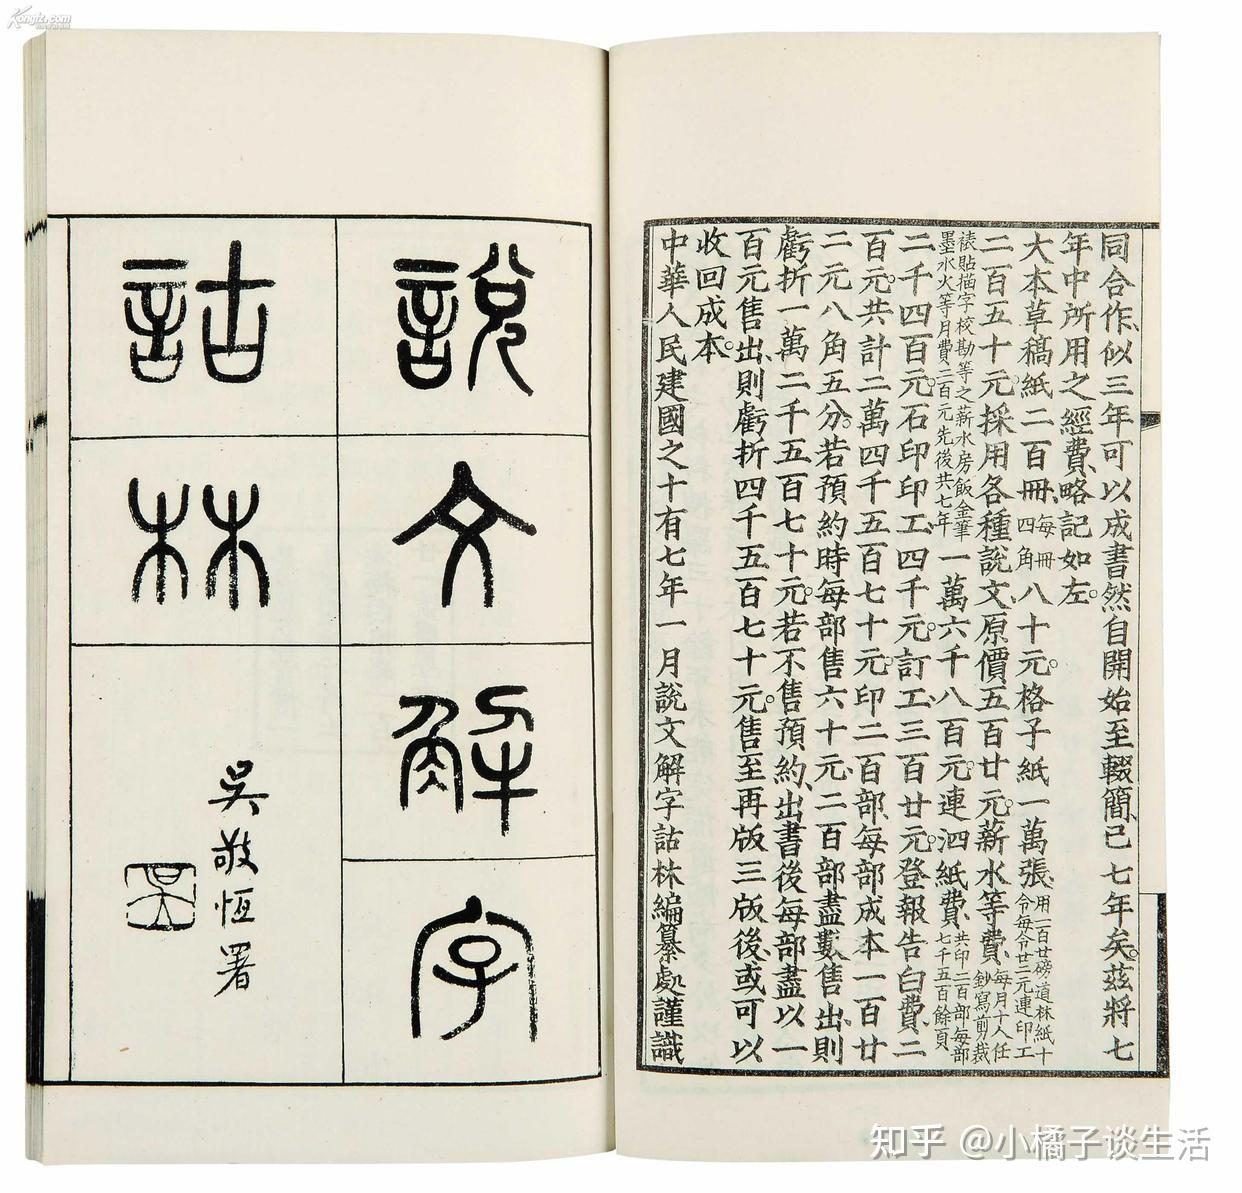 同合作、似三年可以成書、然自開始至輟簡、已七年矣。茲將七
年中所用之經費、略記如左。
大本草稿紙二百冊、每冊四角八十元。格子紙一萬張、用一百廿磅道林紙十令每令廿二元連印工
二百五十元。採用各種說文原價五百廿元。薪水等費、每月十人任鈔寫剪裁
裱貼描字校勘等之薪水房飯金筆墨水火等月費二百元先後共七年一萬六千八百元。連泗紙費、共印二百部每部七千五百餘頁
二千四百元。石印印工四千元。訂工三百廿元。登報告白費二
百元。共計二萬四千五百七十元。印二百部、每部成本一百廿
二元八角五分。若預約時每部售六十元、二百部盡數售出、則
虧折一萬二千五百七十元。若不售預約、出書後每部盡以一
百元售出、則虧折四千五百七十元。售至再版三版後、或可以
收回成本。
中華人民建國之十有七年一月說文解字詁林編纂處謹識
說文解字
詁林
吳敬恆署
Kongfz.com
知乎 @小橘子谈生活